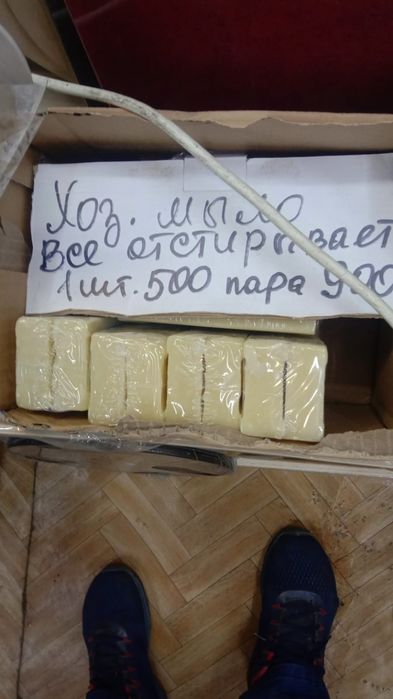 Хоз. мыло
Все отстирывает
1 шт. 500 пара 900